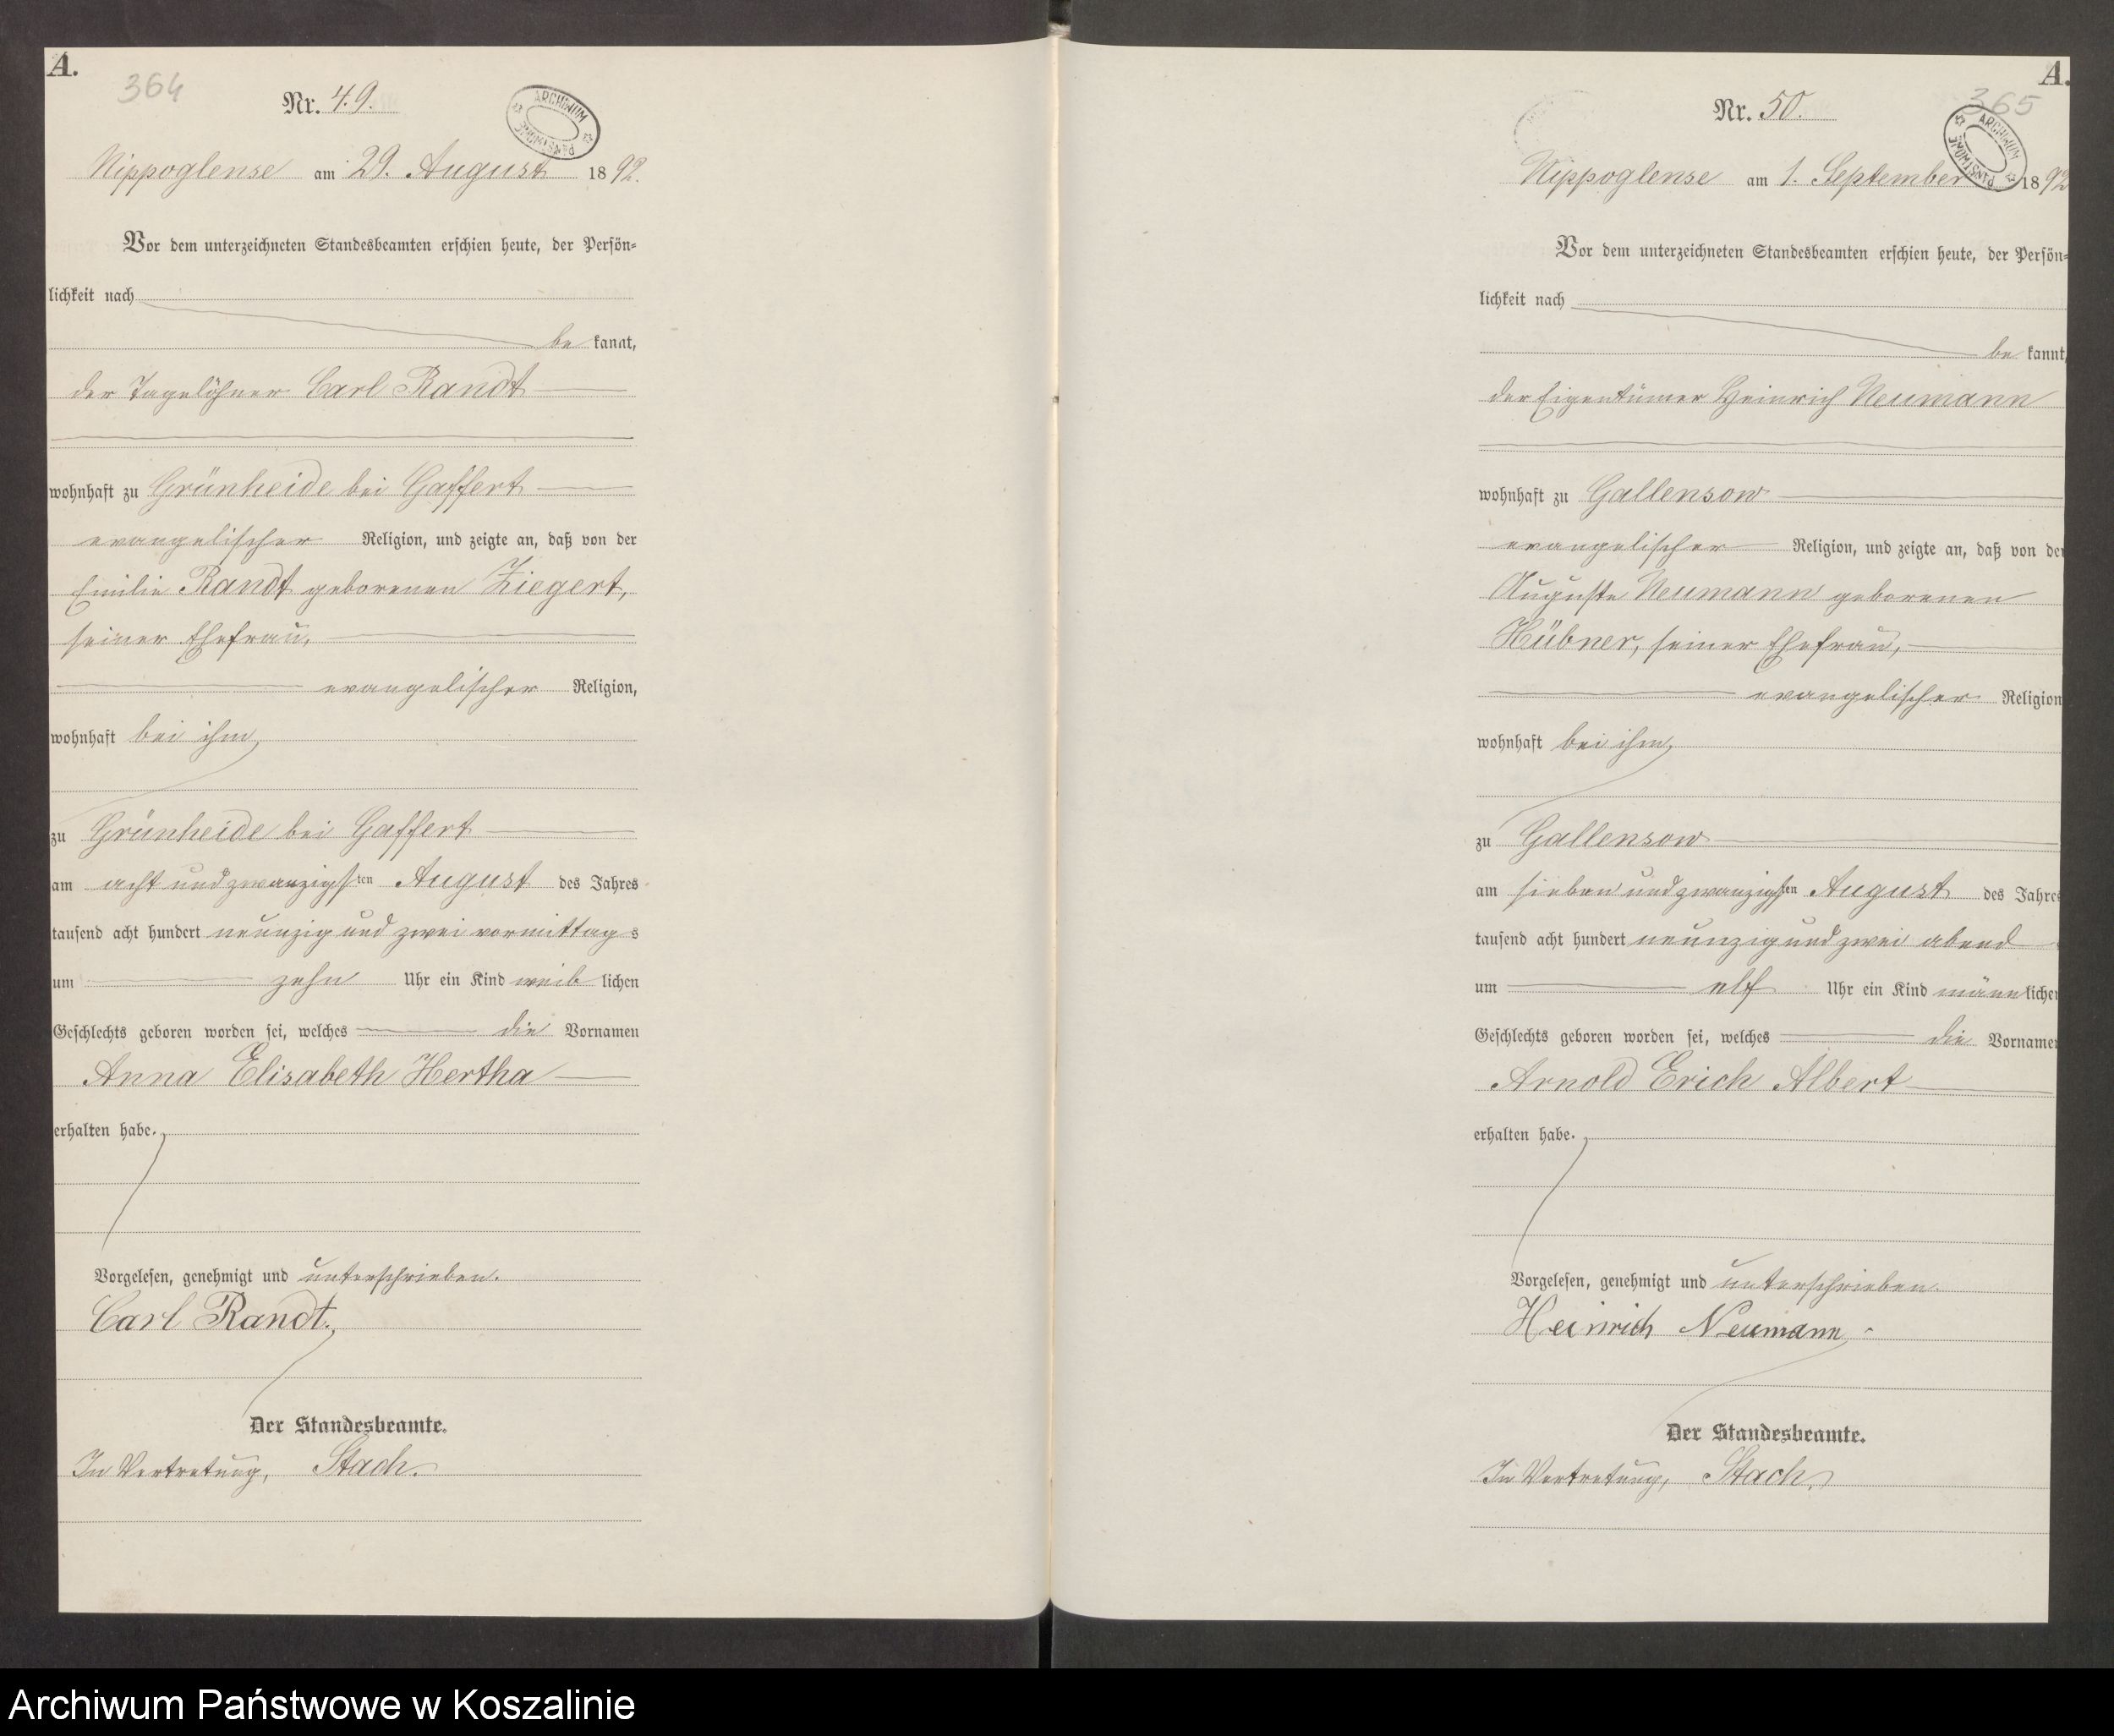 A.
364
Nr. 49.
ARCHIWUM PAŃSTWOWE
Nippoglense am 29. August 1892.
Vor dem unterzeichneten Standesbeamten erschien heute, der Persön-
lichkeit nach
be kannt,
der Tagelöhner Carl Randt
wohnhaft zu Grünheide bei Gaffert
evangelischer Religion, und zeigte an, daß von der
Emilie Randt geborenen Ziegert,
seiner Ehefrau,
evangelischer Religion,
wohnhaft bei ihm,
zu Grünheide bei Gaffert
am acht und zwanzigsten August des Jahres
tausend acht hundert neunzig und zwei vormittags
um zehn Uhr ein Kind weiblichen
Geschlechts geboren worden sei, welches die Vornamen
Anna Elisabeth Hertha
erhalten habe.
Vorgelesen, genehmigt und unterschrieben.
Carl Randt.
Der Standesbeamte.
In Vertretung, Stach.
A.
365
Nr. 50.
ARCHIWUM PAŃSTWOWE
Nippoglense am 1. September 1892
Vor dem unterzeichneten Standesbeamten erschien heute, der Persön-
lichkeit nach
be kannt,
der Eigentümer Heinrich Neumann
wohnhaft zu Gallensow
evangelischer Religion, und zeigte an, daß von der
Auguste Neumann geborenen
Hübner, seiner Ehefrau,
evangelischer Religion
wohnhaft bei ihm,
zu Gallensow
am sieben und zwanzigsten August des Jahres
tausend acht hundert neunzig und zwei abend
um elf Uhr ein Kind männlichen
Geschlechts geboren worden sei, welches die Vornamen
Arnold Erich Albert
erhalten habe.
Vorgelesen, genehmigt und unterschrieben.
Heinrich Neumann
Der Standesbeamte.
In Vertretung, Stach.
Archiwum Państwowe w Koszalinie